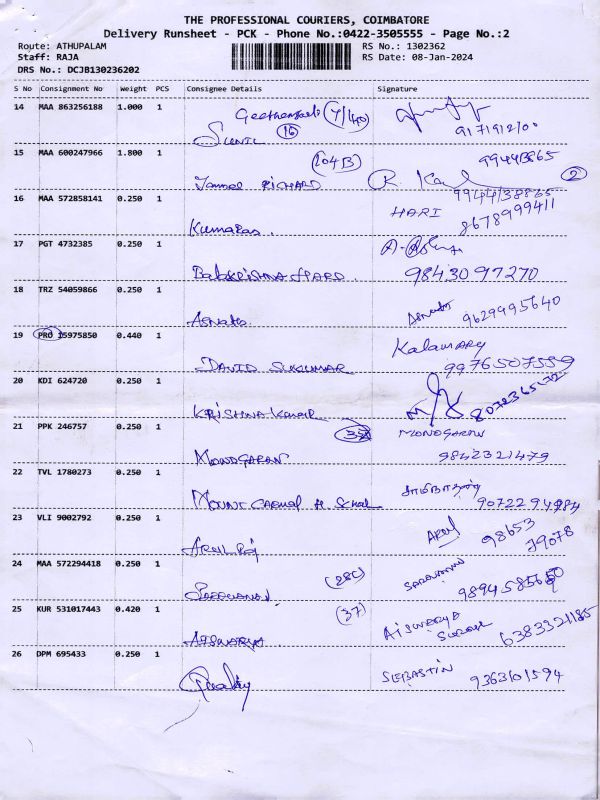 THE PROFESSIONAL COURIERS, COIMBATORE
Delivery Runsheet - PCK - Phone No.:0422-3505555 - Page No.:2
Route: ATHUPALAM RS No.: 1302362
Staff: RAJA RS Date: 08-Jan-2024
DRS No.: DCJB130236202
S No Consignment No Weight PCS Consignee Details Signature
14 MAA 863256188 1.000 1
SUNIL 16
15 MAA 600247966 1.800 1 204B 2
RICHARD
16 MAA 572858141 0.250 1 HARI 8678999411
Kumaran
17 PGT 4732385 0.250 1
9843097270
18 TRZ 54059866 0.250 1
9629995640
19 PRO 15975850 0.440 1 Kalamary
DAVID SUKUMAR 9976507559
20 KDI 624720 0.250 1
KRISHNA KUMAR
21 PPK 246757 0.250 1 MONOGARAN
MONOGARAN 9842321479
22 TVL 1780273 0.250 1
MOUNT CARMAL
23 VLI 9002792 0.250 1 98653
ARUL Raj 29078
24 MAA 572294418 0.250 1 (28C) SARAVANAN
SARAVANAN
25 KUR 531017443 0.420 1 (37) AISWARYA
AISWARYA 6383321185
26 DPM 695433 0.250 1 SEBASTIN 9363101594